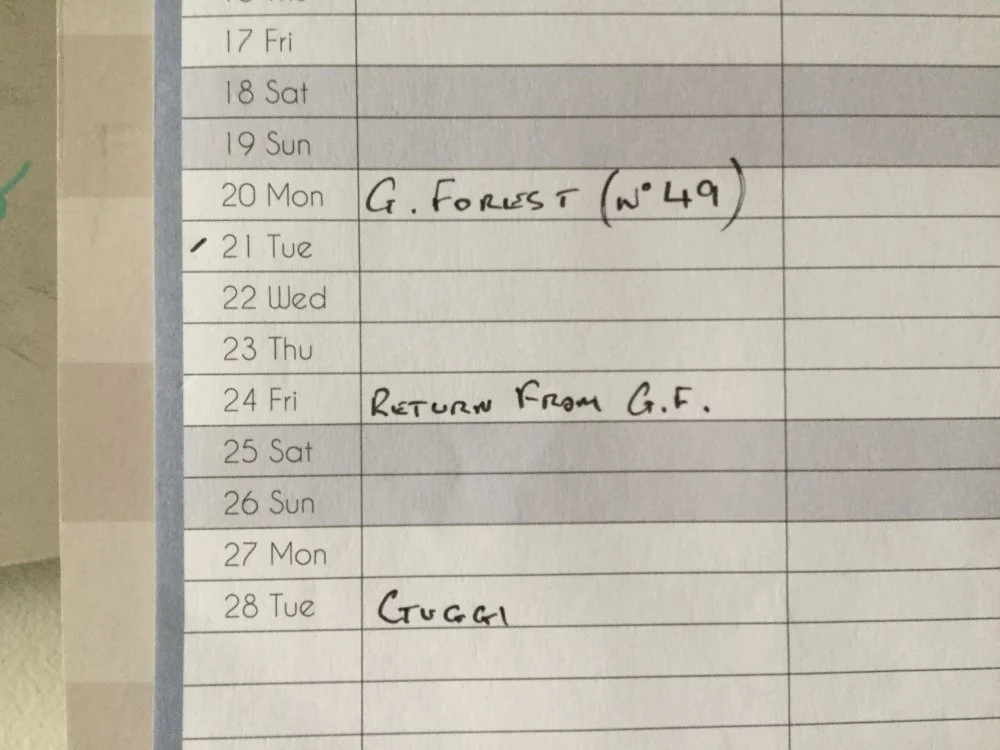 17 Fri
18 Sat
19 Sun
20 Mon G. FOREST (Nº 49)
21 Tue
22 Wed
23 Thu
24 Fri RETURN FROM G.F.
25 Sat
26 Sun
27 Mon
28 Tue GUGGI